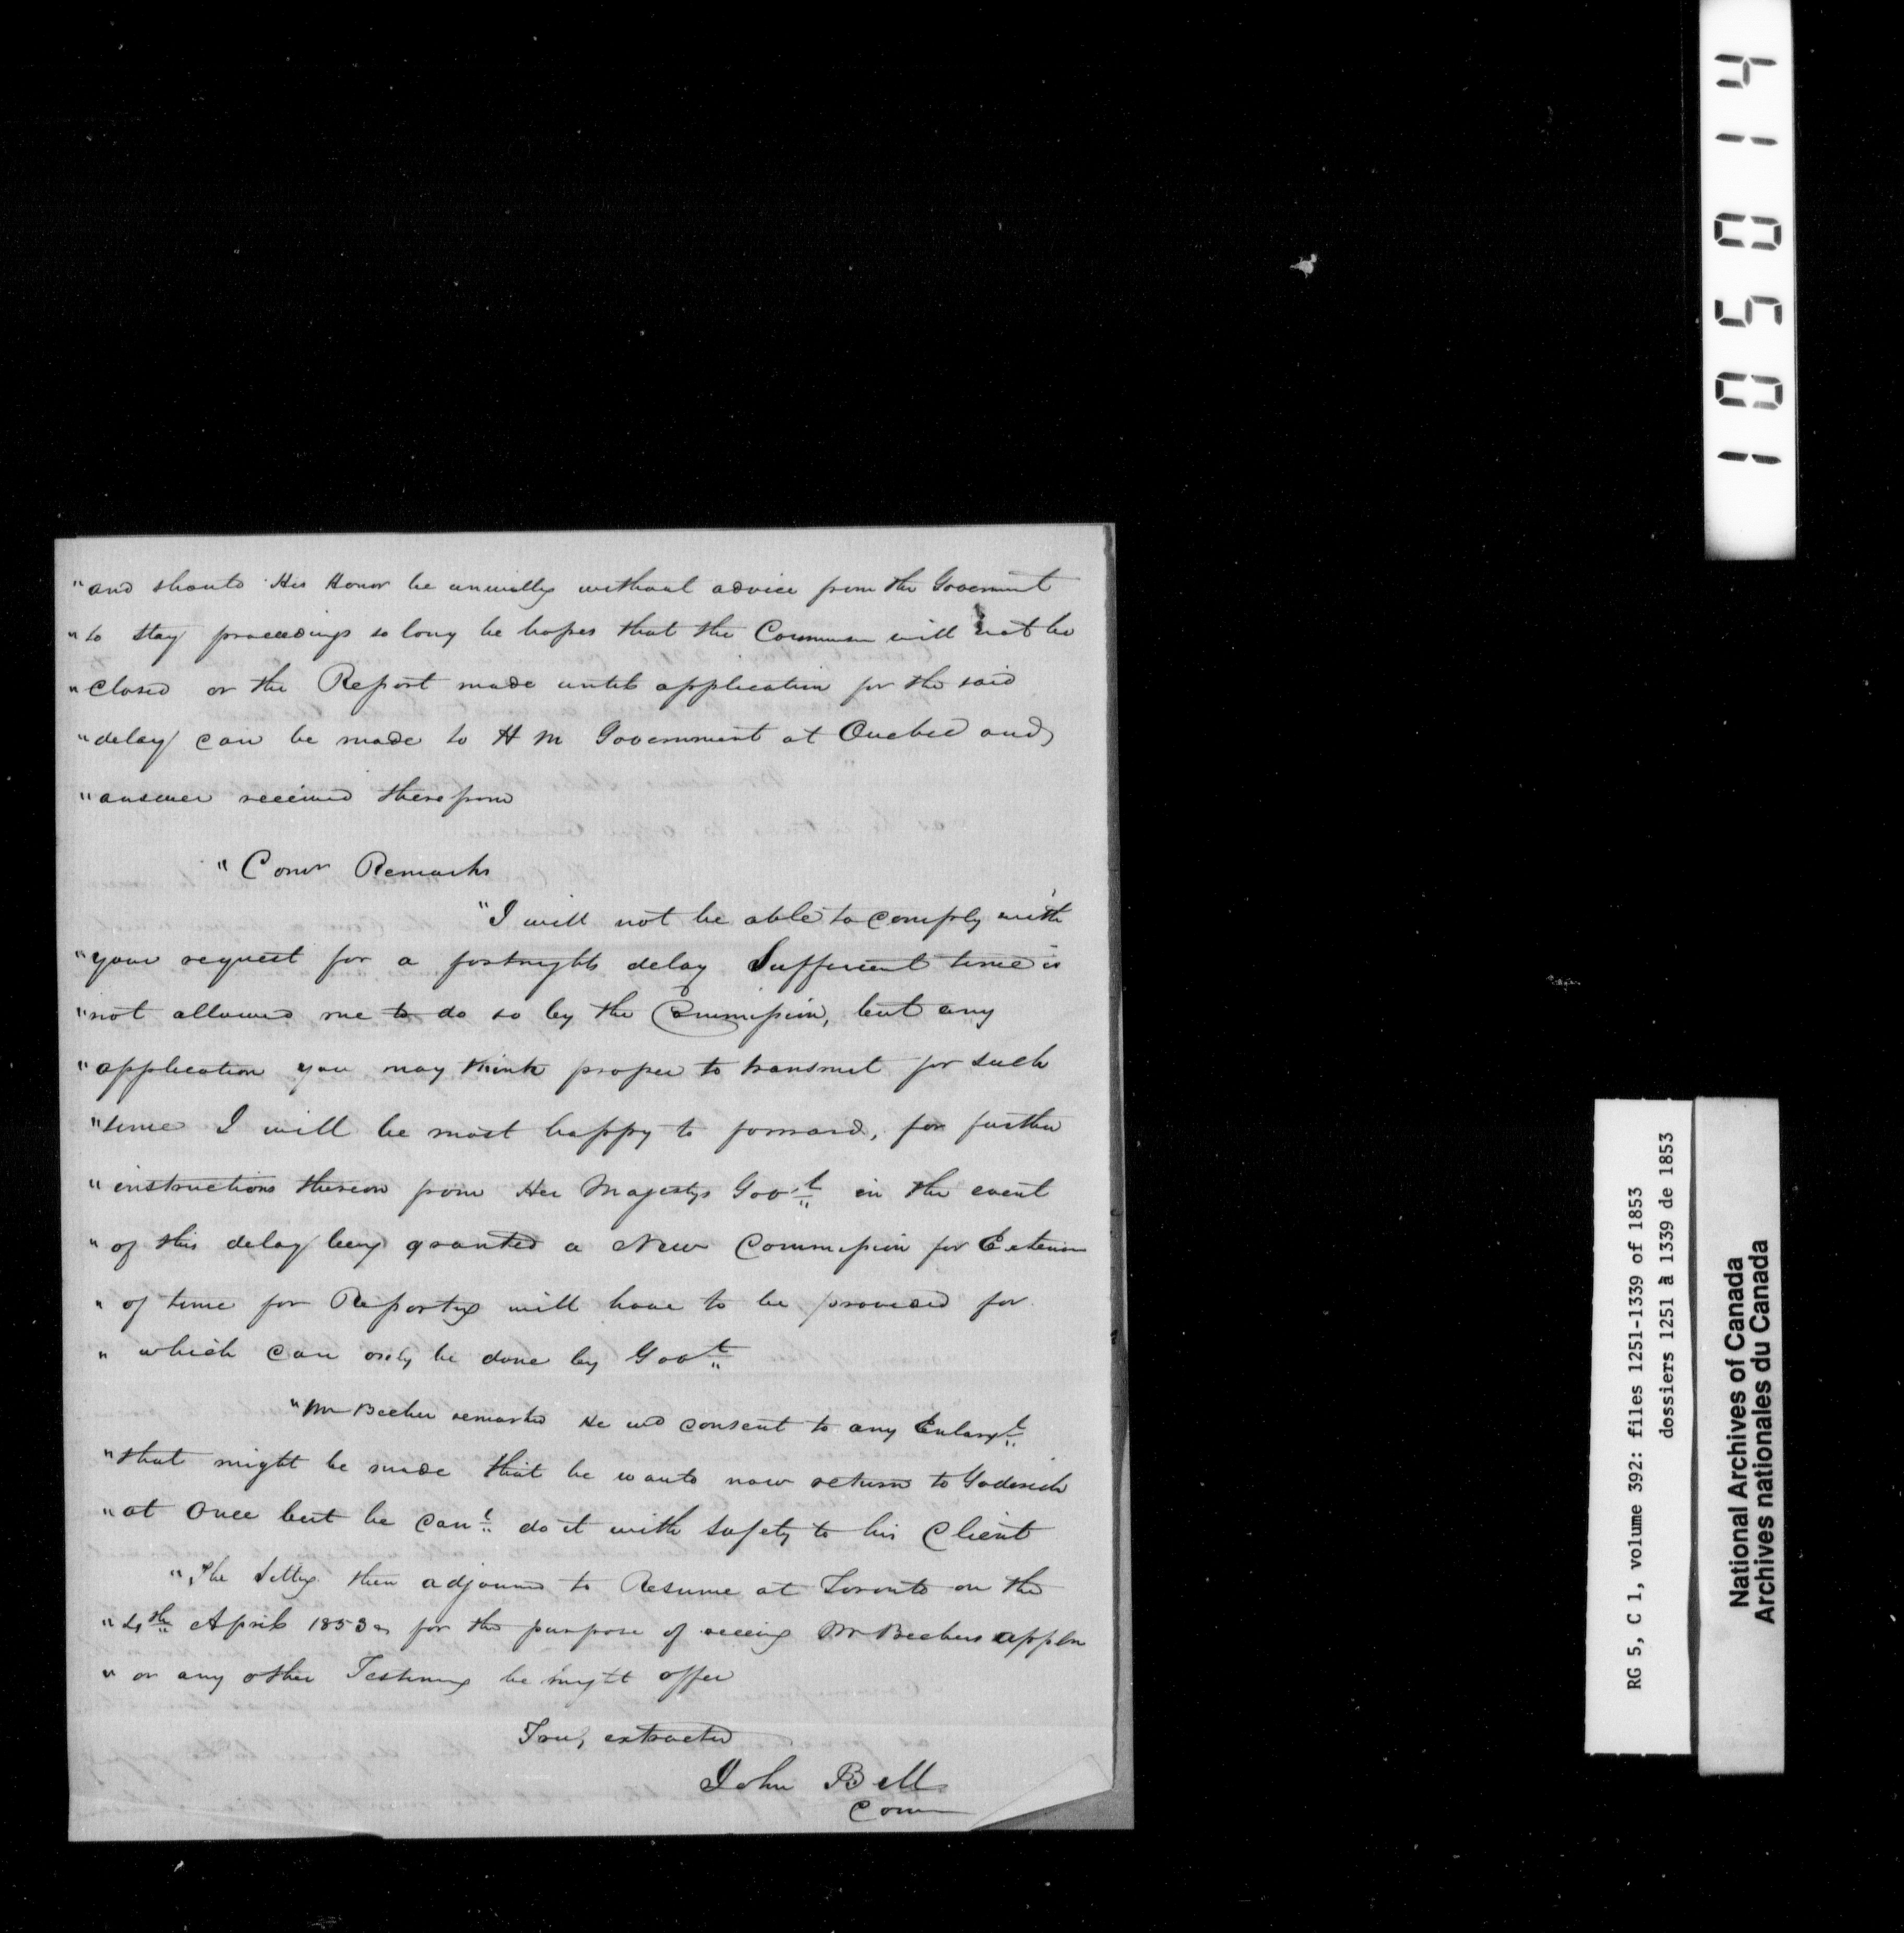 "and should His Honor be unwilling without advice from the Goverment
"to stay proceedings so long he hopes that the Commission will not be
"closed or the Report made until application for the said
"delay can be made to H M Government at Quebec and
"answer received therefrom
"Comr Remarks
"I will not be able to comply with
"your request for a fortnights delay Sufficient time is
"not allowed me to do so by the Commission, but any
"application you may think proper to transmit for such
"time I will be most happy to forward, for further
"instructions thereon from Her Majestys Govt in the event
"of this delay being granted a New Commission for Extension
"of time for Reporting will have to be provided for
"which can only be done by Govt
"Mr Becher remarked He wd consent to any Enlargt
"that might be made that he wants now return to Goderich
"at Once but he cant do it with safety to his Client
"The Sitting then adjourned to Resume at Toronto on the
"4th April 1853 for the purpose of receiving Mr Bechers appln
"or any other Testimony he might offer
True extracted
John Bell
Comr
1 0 5 0 1 4
RG 5, C 1, volume 392: files 1251-1339 of 1853
dossiers 1251 à 1339 de 1853
National Archives of Canada
Archives nationales du Canada